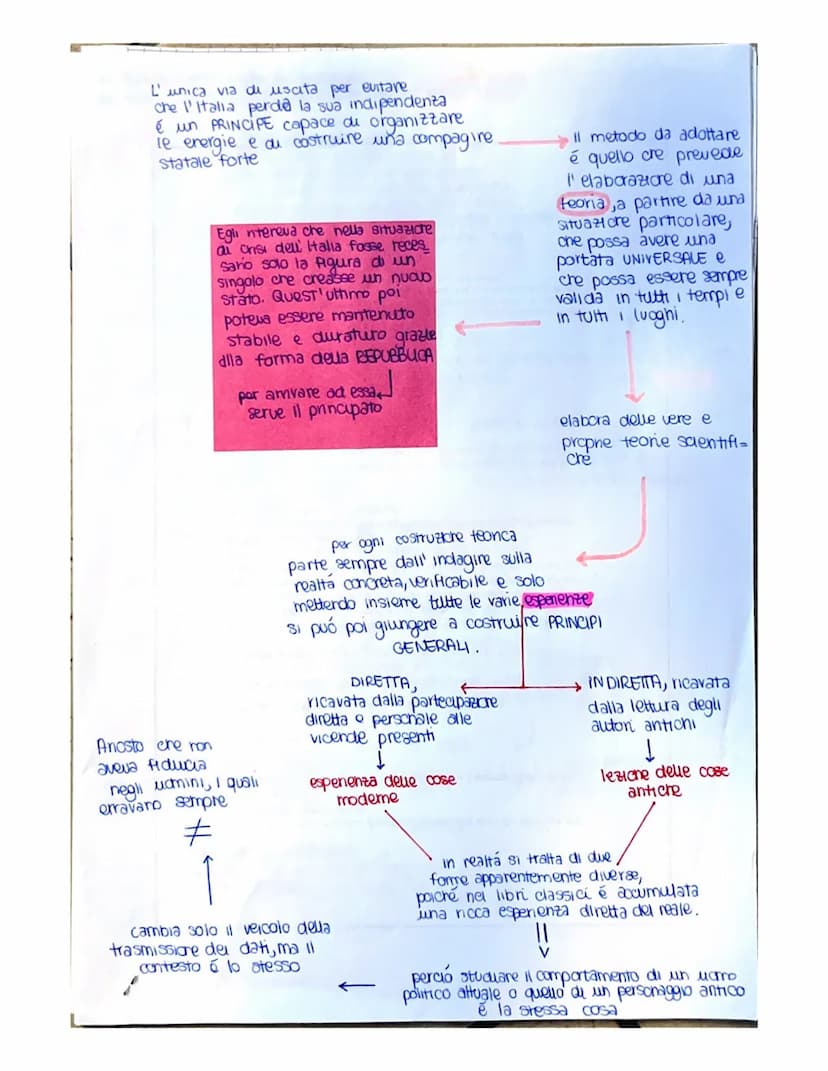 L'unica via di uscita per evitare
che l'Italia perda la sua indipendenza
é un PRINCIPE capace di organizzare
le energie e di costruire una compagine
statale forte
il metodo da adottare
é quello che prevede
l'elaborazione di una
teoria, a partire da una
situazione particolare,
che possa avere una
portata UNIVERSALE e
che possa essere sempre
valida in tutti i tempi e
in tutti i luoghi.
Egli riteneva che nella situazione
di crisi dell'Italia fosse neces_
sario solo la figura di un
singolo che creasse un nuovo
stato. Quest'ultimo poi
poteva essere mantenuto
stabile e duraturo grazie
alla forma della REPUBBLICA
per arrivare ad essa
serve il principato
elabora delle vere e
proprie teorie scientifi=
che
per ogni costruzione teorica
parte sempre dall'indagine sulla
realtá concreta, verificabile e solo
mettendo insieme tutte le varie esperienze
si puó poi giungere a costruire PRINCIPI
GENERALI.
DIRETTA,
ricavata dalla partecipazione
diretta e personale alle
vicende presenti
esperienza delle cose
moderne
INDIRETTA, ricavata
dalla lettura degli
autori antichi
lezione delle cose
antiche
in realtá si tratta di due
forme apparentemente diverse,
poiché nei libri classici é accumulata
una ricca esperienza diretta del reale.
perció studiare il comportamento di un uomo
politico attuale o quello di un personaggio antico
é la stessa cosa
cambia solo il veicolo della
trasmissione dei dati, ma il
contesto é lo stesso
≠
Ariosto che non
aveva fiducia
negli uomini, i quali
erravano sempre